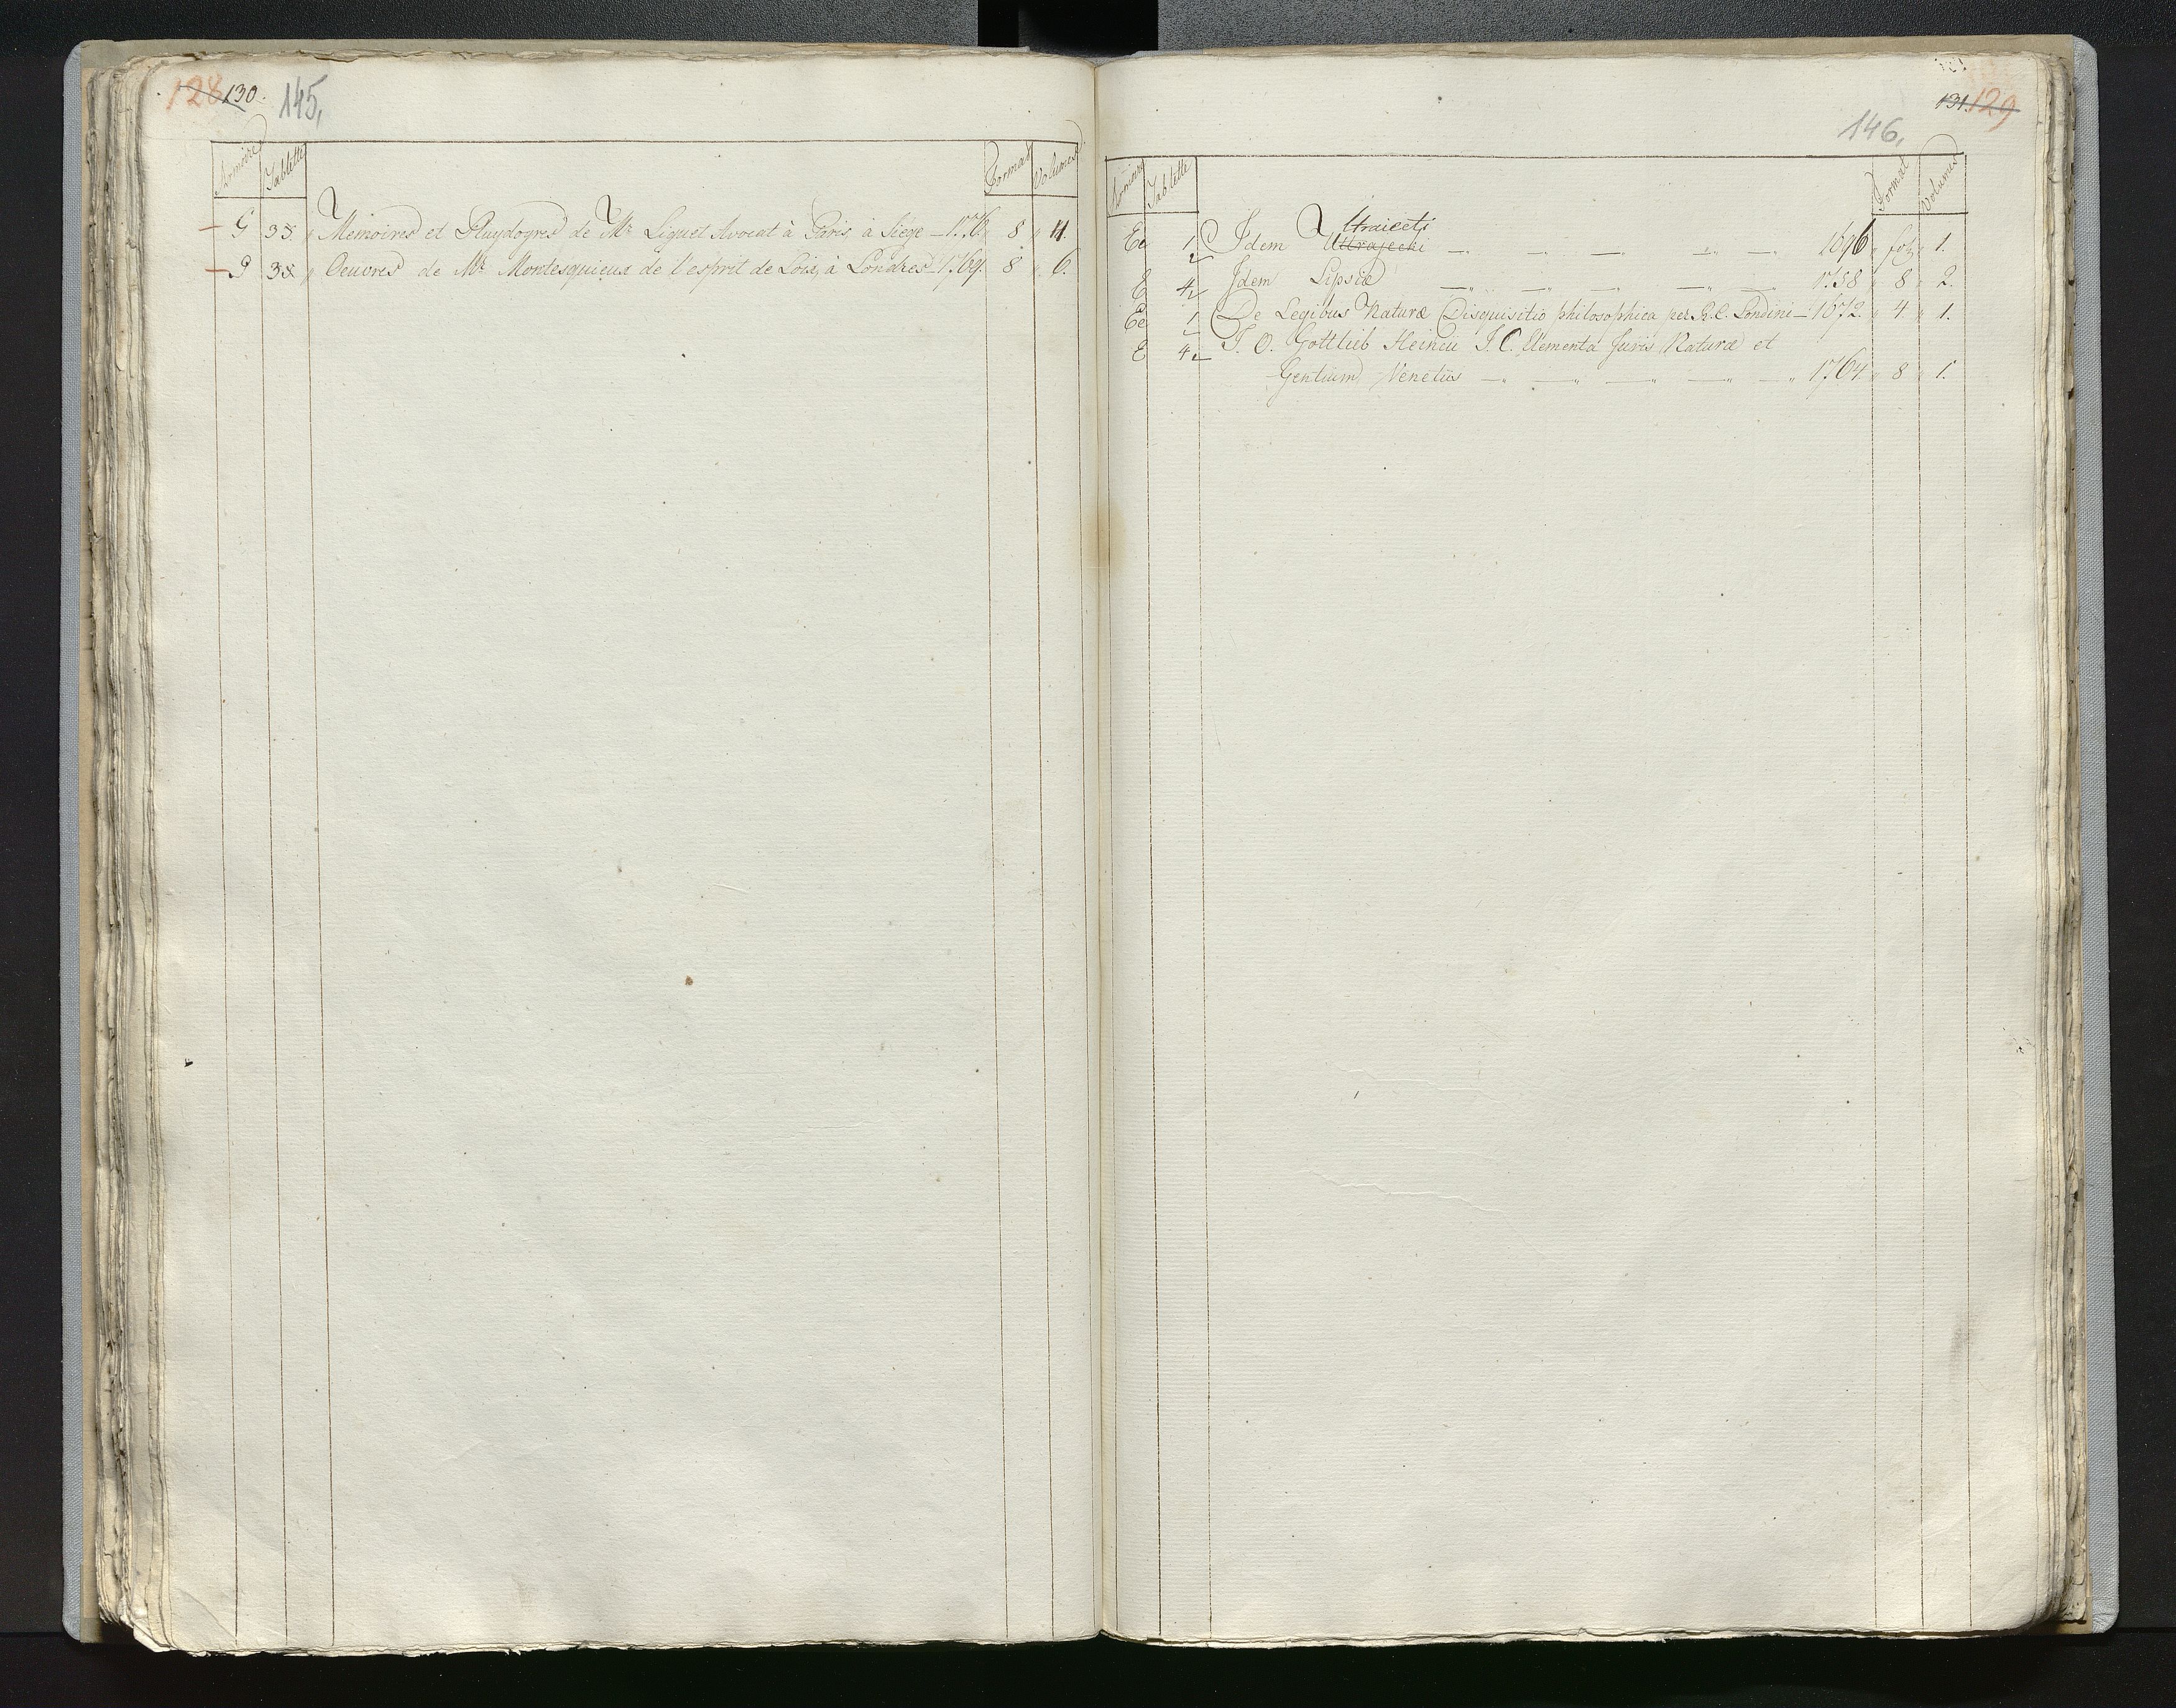 128 130. 145,
Armoire Tablette Format Volumes
G 35. " Memoires et Playdoyres de Mr. Liguet Avocat à Paris, à Liége — 1776 " 8 " 11.
G 35. " Oeuvres de Mr. Montesquieux de l'esprit de Loix, à Londres — 1769. 8 " 6.
131. 129
146.
Armoire Tablette Format Volumes
Utraiecti
Ee 1 Idem Ultrajecki — " — " — " — " — 1696 " fol. " 1.
E 4 Idem Lipsiæ — " — " — " — " — 1758 " 8 " 2.
Ee 1 De Legibus Naturæ Disquisitio philosophica per R. C. Londini — 1672. " 4 " 1.
E 4 I. O. Gottlieb Heineii I. C. Elementa Juris Naturæ et
Gentium Venetiis — " — " — " — " — " 1764. " 8 " 1.